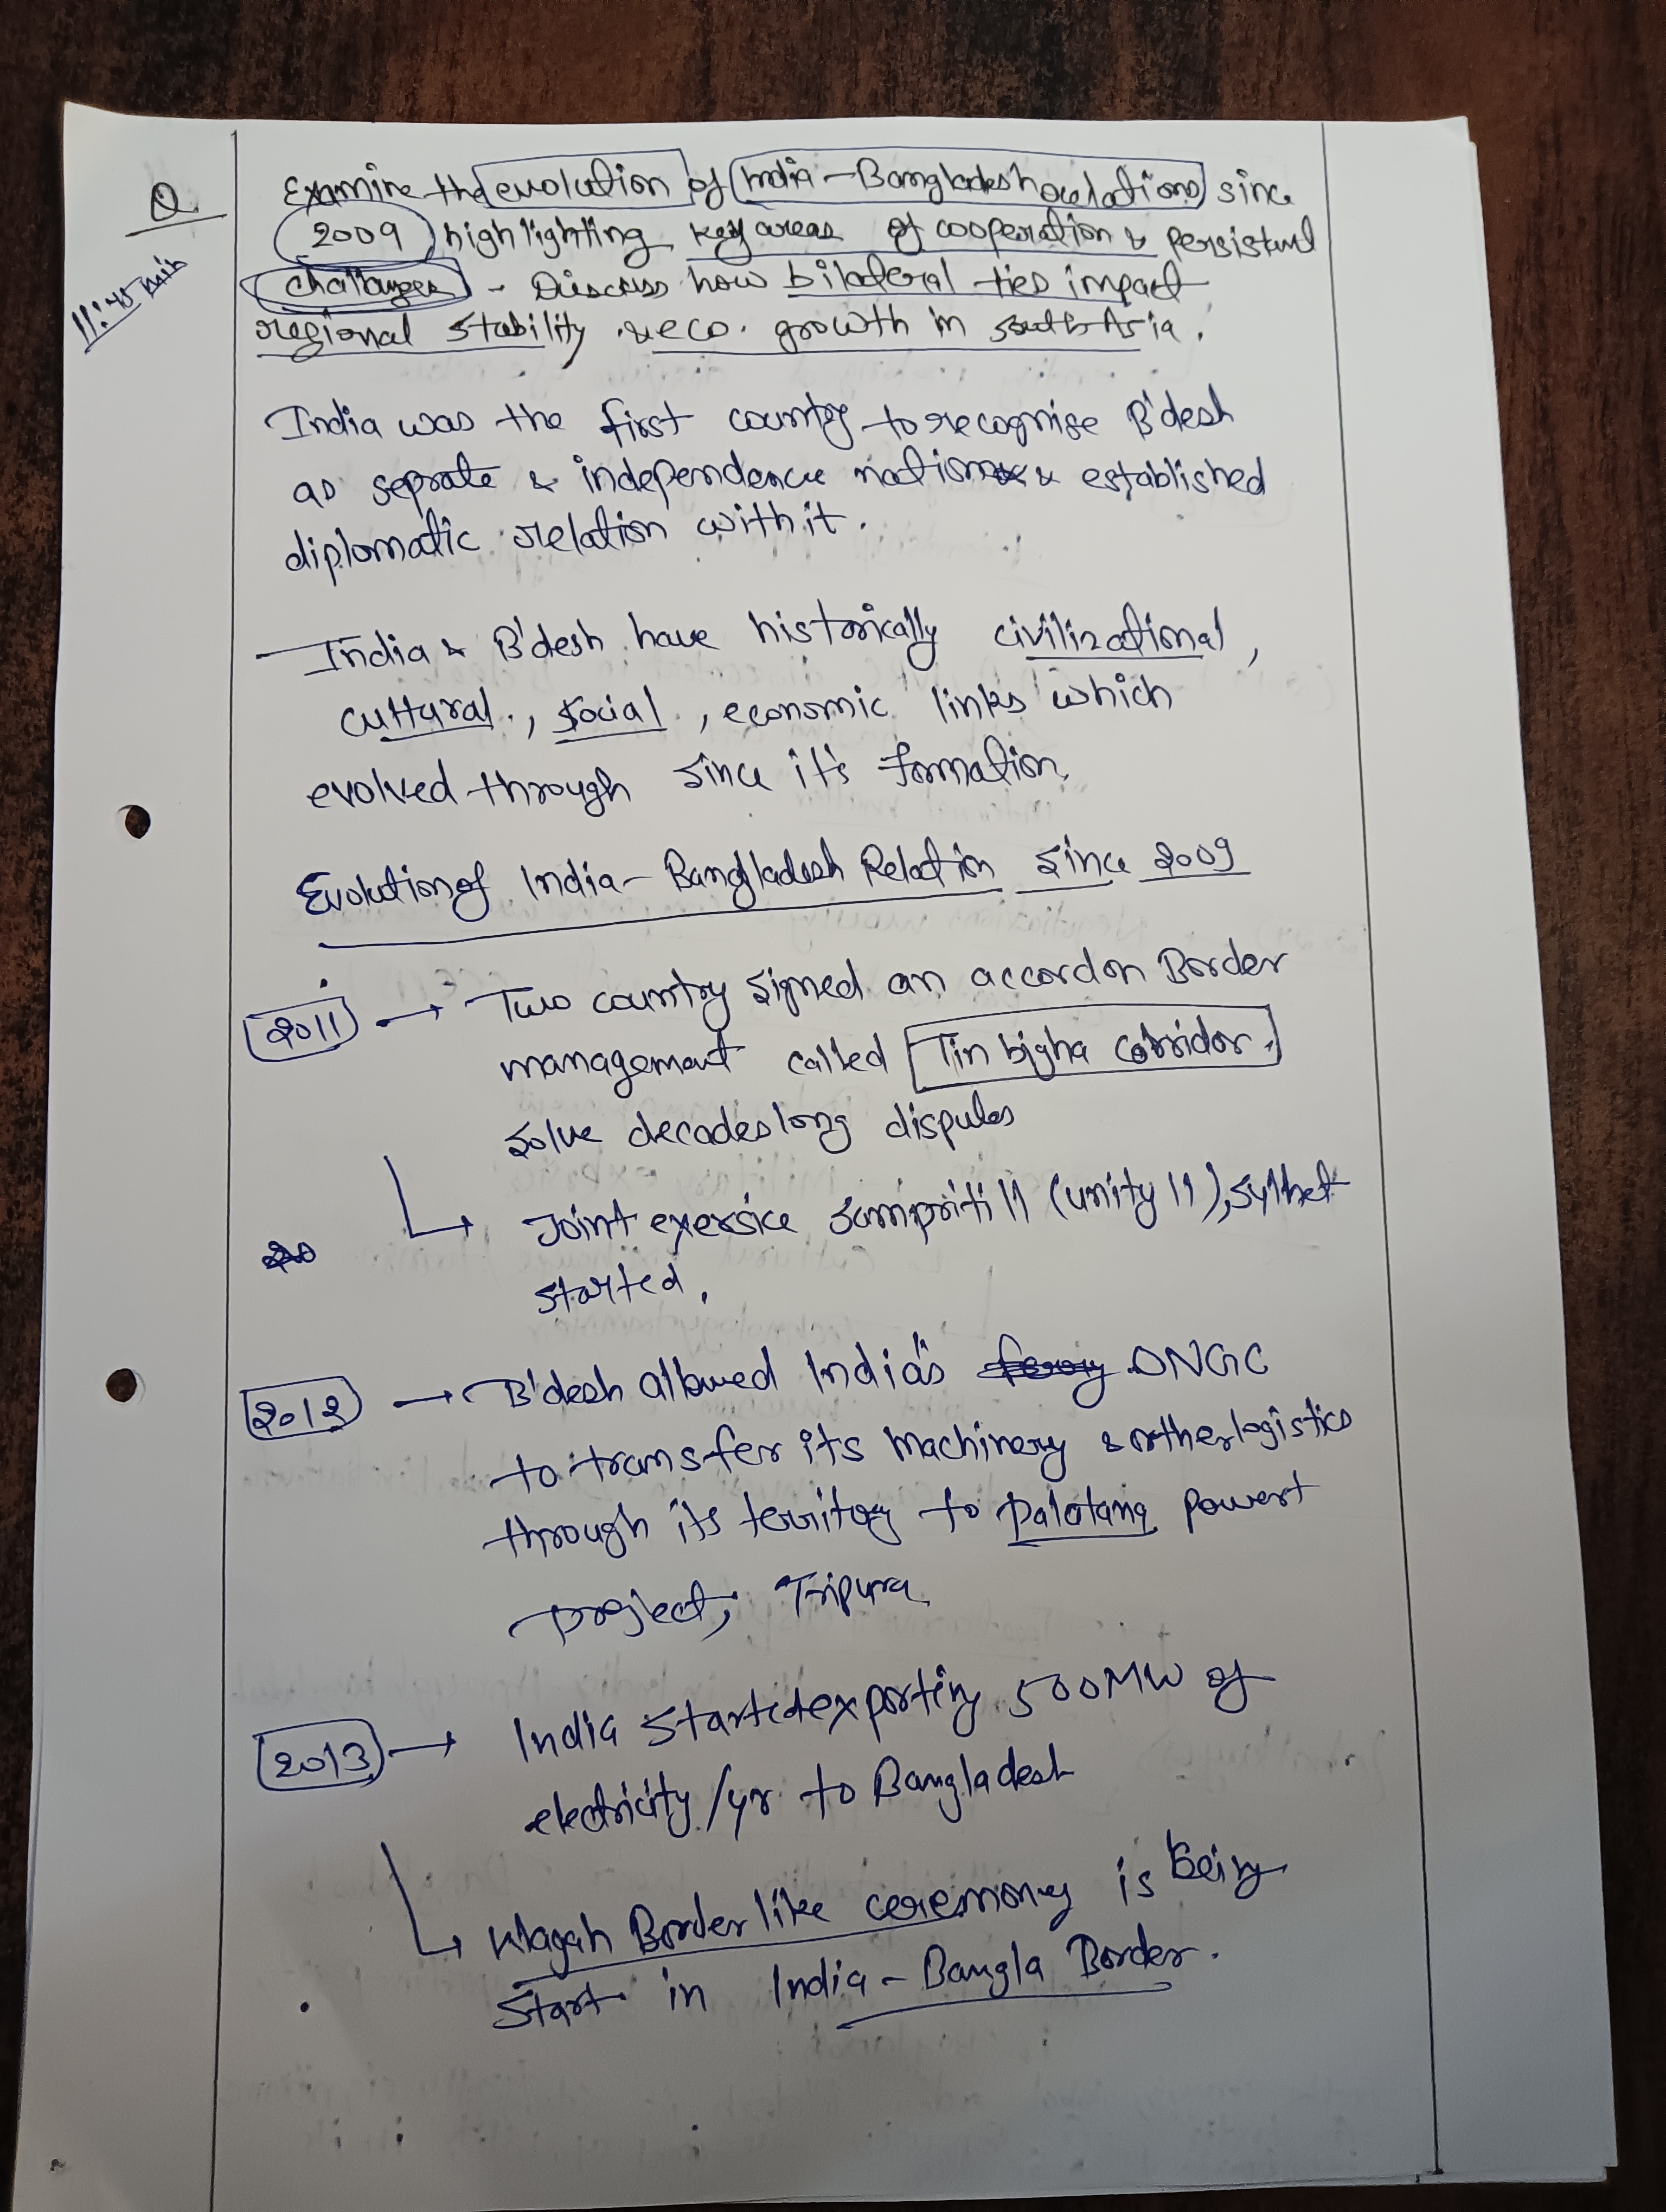 Q
11:45 min
Examine the evolution of India-Bangladesh relations since
2009 highlighting key areas of cooperation & persistent
challanges - Discuss how bilateral ties impact
regional stability & eco. growth in south Asia.
India was the first country to recognise B'desh
as seprate & independence nation & established
diplomatic relation with it.
- India & B'desh have historically civilizational,
cultural, social, economic links which
evolved through since it's formation.
Evolution of India - Bangladesh Relation since 2009
2011 → Two country signed an accord on Border
management called Tin bigha corridor.
solve decades long disputes
↳ Joint exersice sampriti 11 (unity 11), sylhet
started.
2012 → B'desh allowed India's ONGC
to transfer its machinery & other logistics
through its territory to Palatana powert
project, Tripura
2013 → India started exporting 500MW of
electricity/yr to Bangladesh
↳ Wagah Border like ceremony is being
start in India - Bangla Border.